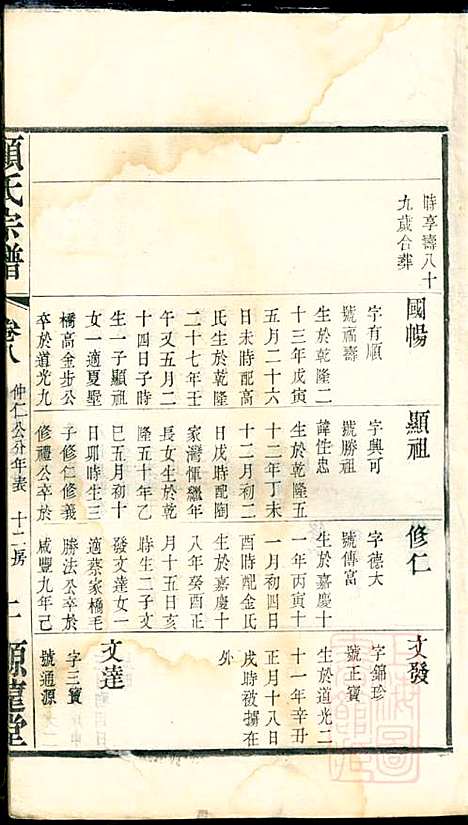 時享壽八十
九歲合葬
國暢
字有順
號福壽
生於乾隆二
十三年戊寅
五月二十六
日未時配高
氏生於乾隆
二十七年壬
午又五月二
十四日子時
生一子顯祖
女一適夏墅
橋高金步公
卒於道光九
顯祖
字興可
號勝祖
諱性忠
生於乾隆五
十二年丁未
十二月初二
日戌時配陶
家灣惲繼年
長女生於乾
隆五十年乙
巳五月初十
日卯時生三
子修仁修義
修禮公卒於
修仁
字德大
號傳富
生於嘉慶十
一年丙寅十
一月初四日
酉時配金氏
生於嘉慶十
八年癸酉正
月十五日亥
時生二子文
發文達女一
適蔡家橋毛
勝法公卒於
咸豐九年己
文發
字錦珍
號正寶
生於道光二
十一年辛丑
正月十八日
戌時被擄在
外
文達
字三寶
號通源
顧氏宗譜
卷八
仲仁公分年表
十二房
二